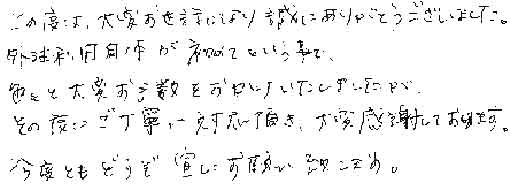 この度は、大変お世話になり誠にありがとうございました。
外球利用自体が初めてという事で、
色々と大変お手数をおかけいたしましたが、
その度にご丁寧に対応頂き、大変感謝しております。
今度ともどうぞ宜しくお願い致します。